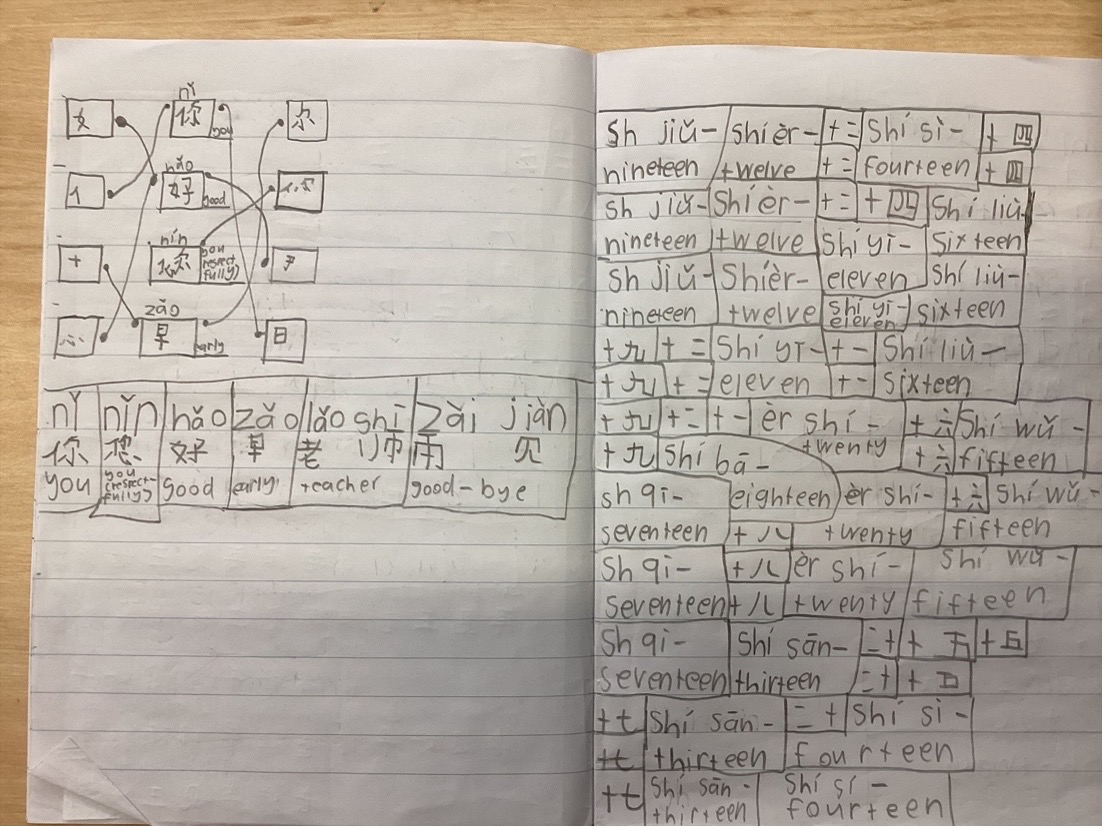 女 nǐ 你 you 尔
亻 hǎo 好 good 你
十 nín 您 you (respectfully) 子
心 zǎo 早 early 日
nǐ nǐn hǎo zǎo lǎo shī zài jiàn
你 您 好 早 老 师 再 见
you you (respectfully) good early teacher good-bye
sh jiǔ- shí èr- 十二 shí sì- 十四
nineteen twelve 十二 fourteen 十四
sh jiǔ- shí èr- 十二 十四 shí liù-
nineteen twelve shí yī- sixteen
sh jiǔ- shí èr- eleven shí liù-
nineteen twelve shí yī- eleven sixteen
十九 十二 shí yī- 十一 shí liù-
十九 十二 eleven 十一 sixteen
十九 十二 十一 èr shí- 十六 shí wǔ-
十九 shí bā- twenty 十六 fifteen
sh qī- eighteen èr shí- 十六 shí wǔ-
seventeen 十八 twenty fifteen
sh qī- 十八 èr shí- shí wǔ-
seventeen 十八 twenty fifteen
sh qī- shí sān- 二十 十五 十五
seventeen thirteen 二十 十五
十七 shí sān- 二十 shí sì-
十七 thirteen fourteen
十七 shí sān- thirteen shí sí- fourteen